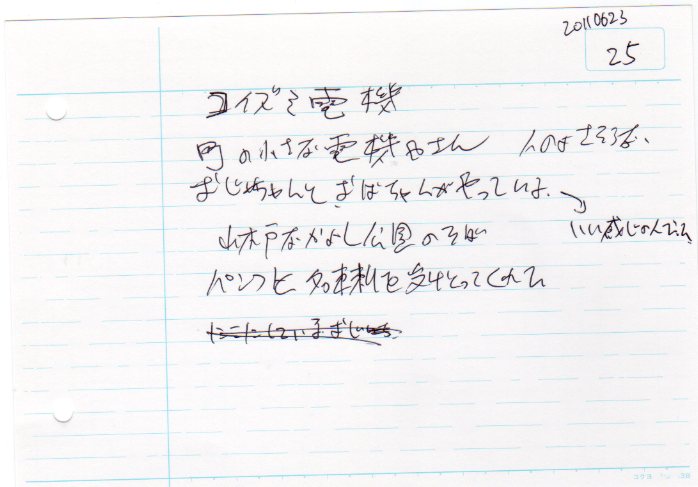 20110623
25
コイズミ電機
町の小さな電機やさん 人のよさそうな、
おじいちゃんとおばちゃんがやっている。
いい感じの人でした
山木戸なかよし公園のそば
パンフと名刺を受けとってくれた
にこにこしている